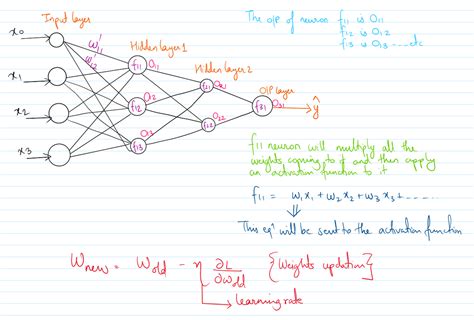 Input layer
x0
x1
x2
x3
w11'
Hidden layer 1
f11 O11
f12 O12
f13 O13
Hidden layer 2
f21 O21
f22
O/P layer
f31 O31
ŷ
The o/p of neuron f11 is O11
f12 is O12
f13 is O13 ---- etc
f11 neuron will multiply all the
weights coming to it and then apply
an activation function to it
f11 = w1x1 + w2x2 + w3x3 + ------
This eqn will be sent to the activation function
Wnew = Wold - η ∂L/∂Wold {Weights updation}
learning rate